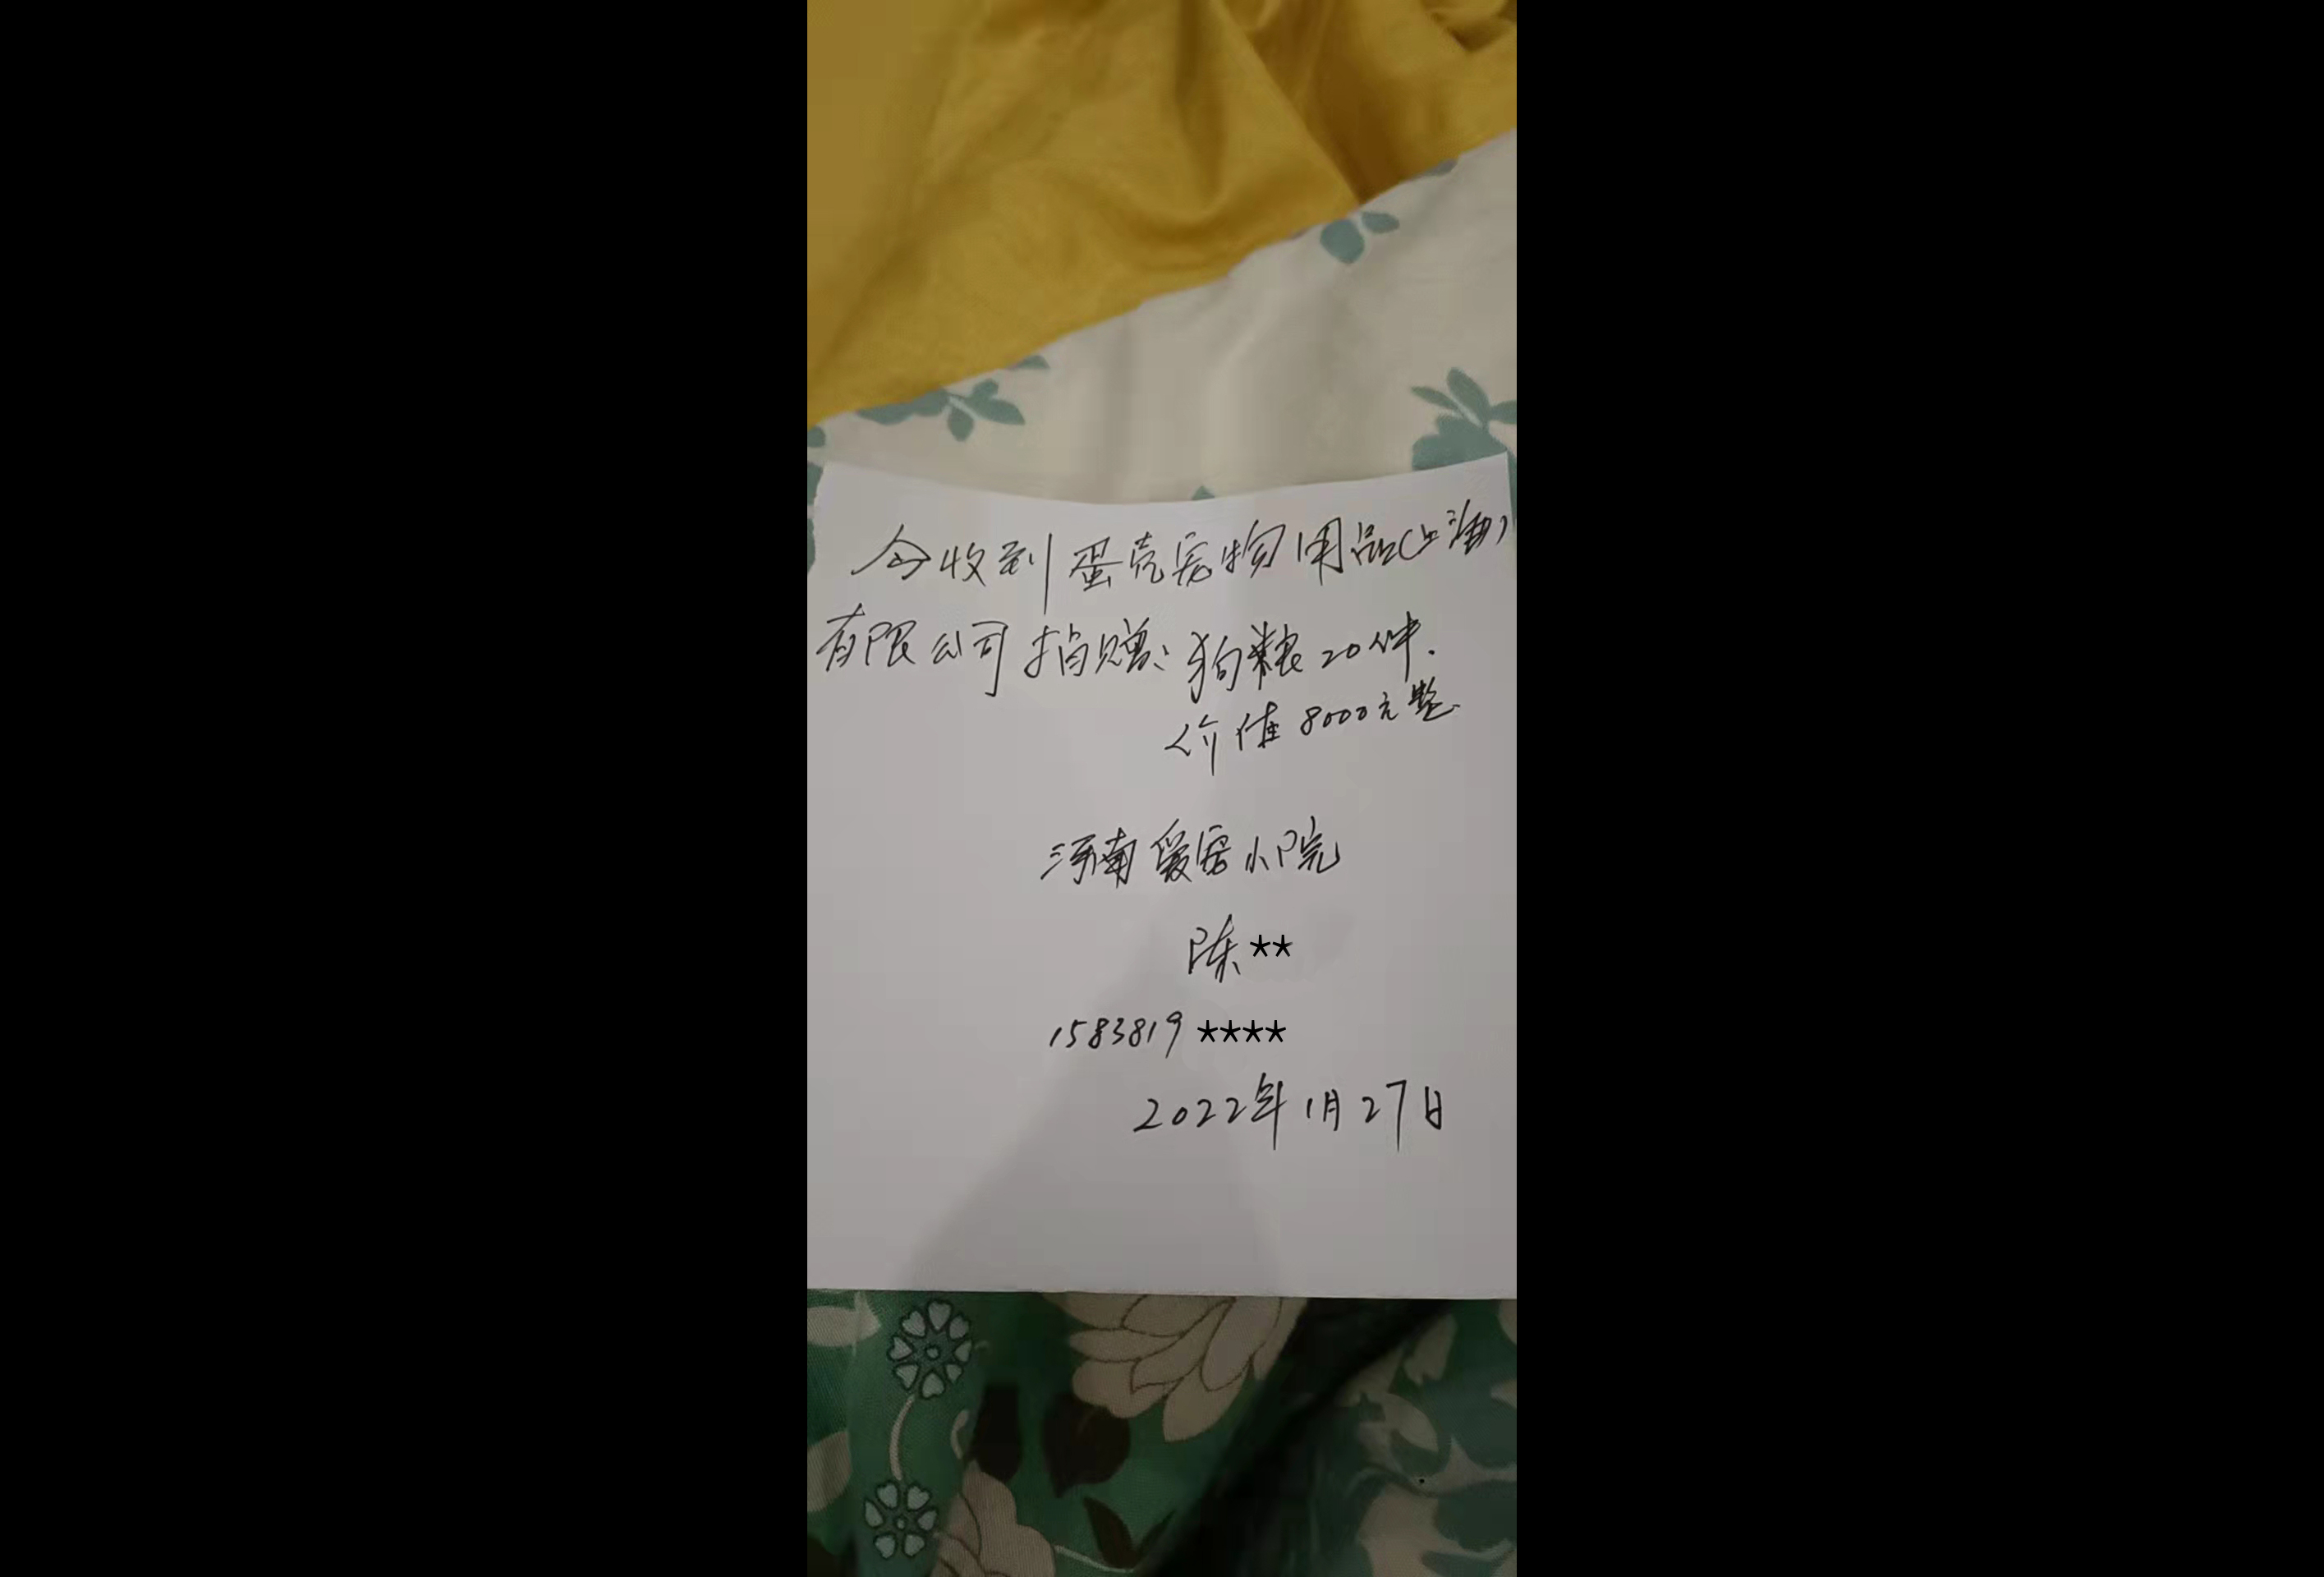 今收到蛋壳宠物用品(上海)
有限公司捐赠:狗粮20件.
价值8000元整.
河南爱宠小院
陈**
1583819****
2022年1月27日